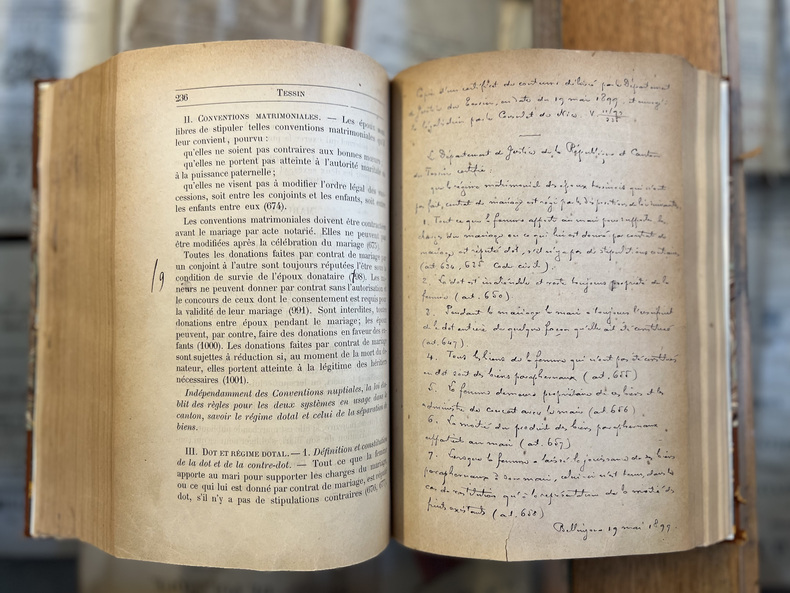 236
TESSIN
II. CONVENTIONS MATRIMONIALES. — Les époux
libres de stipuler telles conventions matrimoniales
leur convient, pourvu :
qu'elles ne soient pas contraires aux bonnes
qu'elles ne portent pas atteinte à l'autorité
à la puissance paternelle ;
qu'elles ne visent pas à modifier l'ordre légal des
cessions, soit entre les conjoints et les enfants, soit
les enfants entre eux (674).
Les conventions matrimoniales doivent être
avant le mariage par acte notarié. Elles ne peuvent
être modifiées après la célébration du mariage (675).
Toutes les donations faites par contrat de mariage
un conjoint à l'autre sont toujours réputées l'être sous
19
condition de survie de l'époux donataire Les
neurs ne peuvent donner par contrat sans l'autorisation
le concours de ceux dont le consentement est requis pour
la validité de leur mariage (991). Sont interdites, toutes
donations entre époux pendant le mariage ; les époux
peuvent, par contre, faire des donations en faveur des
fants (1000). Les donations faites par contrat de mariage
sont sujettes à réduction si, au moment de la mort du
nateur, elles portent atteinte à la légitime des héritiers
nécessaires (1001).
Indépendamment des Conventions nuptiales, la loi
blit des règles pour les deux systèmes en usage dans le
canton, savoir le régime dotal et celui de la séparation
biens.
III. DOT ET RÉGIME DOTAL. — 1. Définition et constitution
de la dot et de la contre-dot. — Tout ce que la femme
apporte au mari pour supporter les charges du mariage,
ou ce qui lui est donné par contrat de mariage, est
dot, s'il n'y a pas de stipulations contraires (676, 677)
Copie d'un certificat de coutume délivré par le Département
de Justice du Tessin, en date du 19 mai 1899, et
légalisé par le Consulat de Nice. V.
Le Département de Justice de la République et Canton
du Tessin certifie
que le régime matrimonial des époux tessinois qui n'ont
pas fait contrat de mariage est régi par les dispositions suivantes
1. Tout ce que la femme apporte au mari pour supporter les
charges du mariage ou ce qui lui est donné par contrat de
mariage est réputé dot, s'il n'y a pas de stipulations contraires
(art 634, 635 Code civil).
2. La dot est inaliénable et reste toujours propriété de la
femme (art. 640)
3. Pendant le mariage le mari a toujours l'usufruit
de la dot de quelque façon qu'elle ait été constituée
(art. 647).
4. Tous les biens de la femme qui n'ont pas été constitués
en dot sont des biens paraphernaux (art. 655)
5. La femme demeure propriétaire de ces biens et les
administre de concert avec le mari (art. 656).
6. La moitié du produit des biens paraphernaux
appartient au mari (art. 657)
7. Lorsque la femme a laissé la jouissance de ses biens
paraphernaux à son mari, celui-ci n'est tenu, dans le
cas de restitution qu'à la représentation de la moitié des
fruits existants (art. 658)
Bellinzona 19 mai 1899.